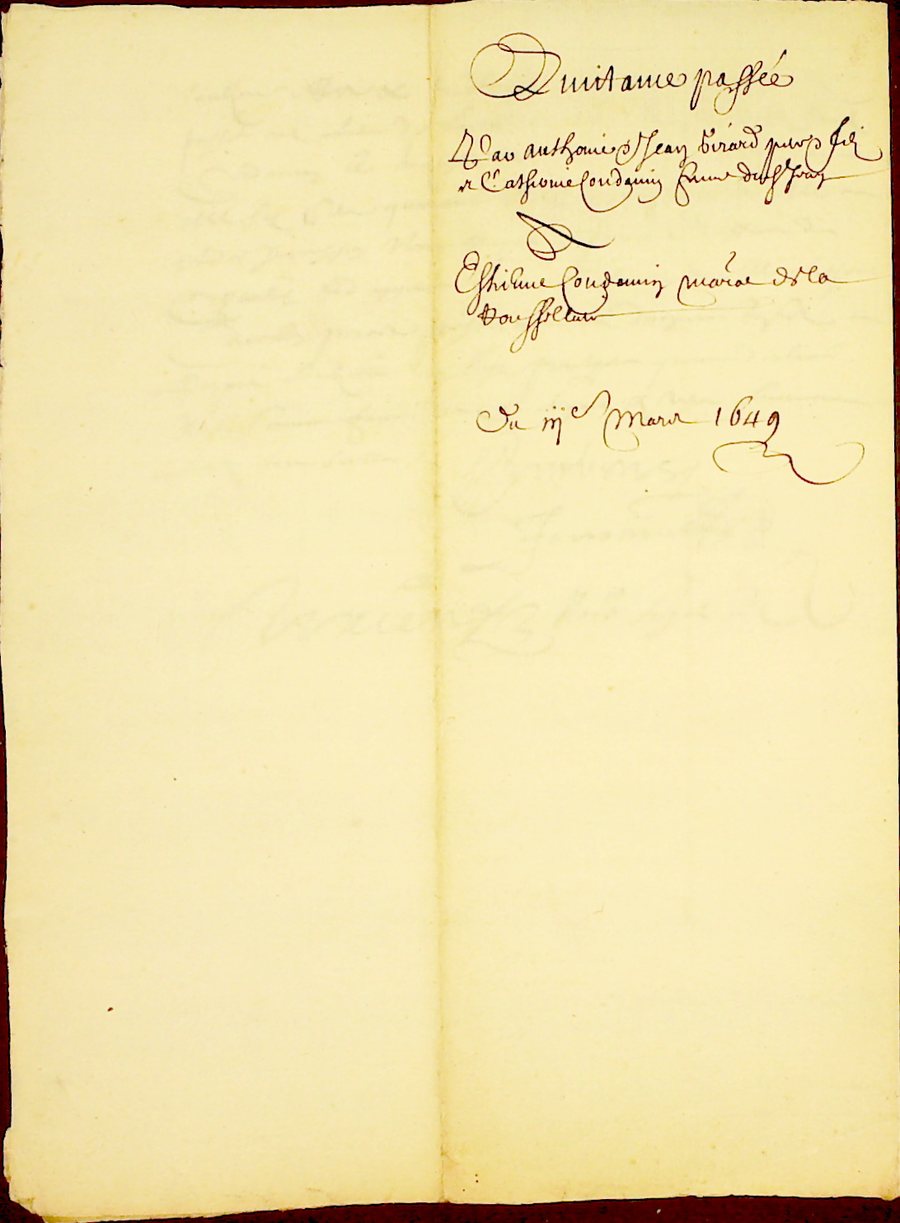 Quittance passée
Par Anthoine & Jean Girard pere & filz
et Catherine Condamin femme dud Jean
A
Estienne Condamin mar͠ de la
Du iij^e Mars 1649